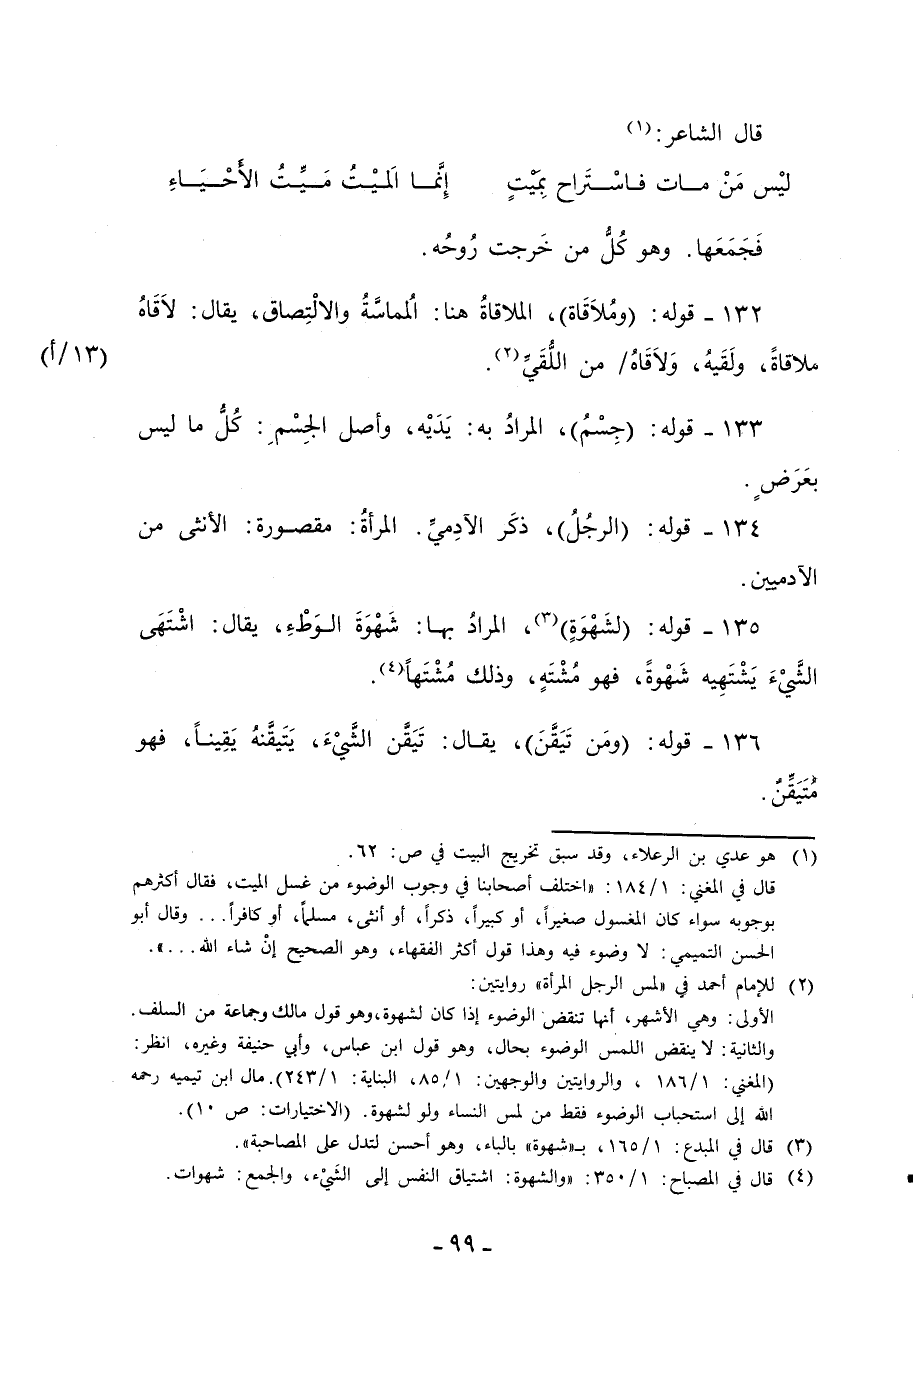 قال الشاعر:(١)
ليْس مَنْ مـــات فـاسْـتَراح بِمَيْتٍ إِنَّمـا المَيْـتُ مَـيِّـتُ الأَحْـيَـاءِ
فَجَمَعَها. وهو كُلُّ من خَرجت رُوحُه.
١٣٢ - قوله: (ومُلاَقَاة)، الملاقاةُ هنا: اُلمماسَّةُ والالْتِصاق، يقال: لاَقَاهُ
ملاقاةً، ولَقَيهُ، وَلاَقَاهُ/ من اللُّقَيِّ(٢).
(١٣/أ)
١٣٣ - قوله: (جِسْمُ)، المرادُ به: يَدَيْه، وأصل الجِسْمِ: كُلُّ ما ليس
بعَرَضٍ.
١٣٤ - قوله: (الرجُلُ)، ذكَر الآدِميِّ. المرأةُ: مقصـورة: الأنثى من
الآدميين.
١٣٥ - قوله: (لشَهْوَةٍ)(٣)، المرادُ بهـا: شَهْوَةَ الـوَطْءِ، يقال: اشْتَهَى
الشَّيْءَ يَشْتَهِيه شَهْوةً، فهو مُشْتَهٍ، وذلك مُشْتَهاً(٤).
١٣٦ - قوله: (ومَن تَيَقَّنَ)، يقـال: تَيَقَّن الشَّيْءَ، يَتَيقَّنهُ يَقِينـاً، فهو
مُتَيَقِّنٌ.
(١) هو عدي بن الرعلاء، وقد سبق تخريج البيت في ص: ٦٢.
قال في المغني: ١/١٨٤: «اختلف أصحابنا في وجوب الوضوء من غسل الميت، فقال أكثرهم
بوجوبه سواء كان المغسول صغيراً، أو كبيراً، ذكراً، أو أنثى، مسلماً، أو كافراً... وقال أبو
الحسن التميمي: لا وضوء فيه وهذا قول أكثر الفقهاء، وهو الصحيح إنْ شاء الله...».
(٢) للإمام أحمد في «لمس الرجل المرأة» روايتين:
الأولى: وهي الأشهر، أنها تنقض الوضوء إذا كان لشهوة،وهو قول مالك وجماعة من السلف.
والثانية: لا ينقض اللمس الوضوء بحال، وهو قول ابن عباس، وأبي حنيفة وغيره، انظر:
(المغني: ١/١٨٦ ، والروايتين والوجهين: ١/٨٥، البناية: ١/٢٤٣).مال ابن تيميه رحمه
الله إلى استحباب الوضوء فقط من لمس النساء ولو لشهوة. (الاختيارات: ص ١٠).
(٣) قال في المبدع: ١/١٦٥، بـ«شهوة» بالباء، وهو أحسن لتدل على المصاحبة».
(٤) قال في المصباح: ١/٣٥٠: «والشهوة: اشتياق النفس إلى الشَيْء، والجمع: شهوات.
- ٩٩ -